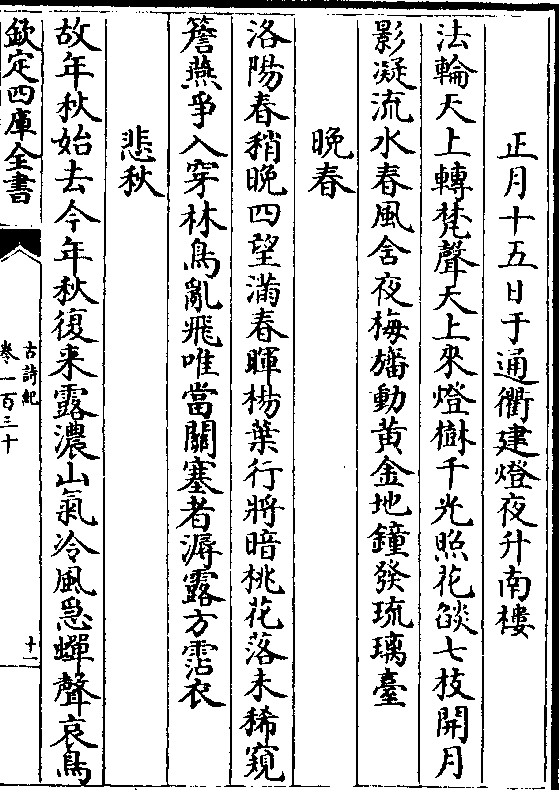 正月十五日于通衢建燈夜升南樓
法輪天上轉梵聲天上來燈樹千光照花燄七枝開月
影凝流水春風含夜梅旛動黄金地鐘發琉璃臺
晚春
洛陽春稍晚四望滿春暉楊葉行將暗桃花落未稀窺
簷燕爭入穿林鳥亂飛唯當關塞者溽露方霑衣
悲秋
故年秋始去今年秋復来露濃山氣冷風急蟬聲哀鳥
欽定四庫全書
古詩紀
卷一百三十
十一